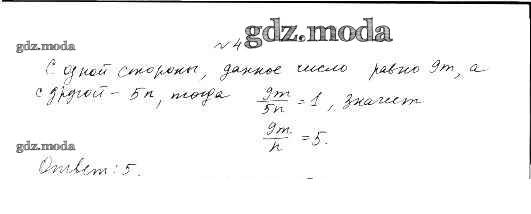 № 4 gdz.moda
gdz.moda
С одной стороны, данное число равно 9m, а
с другой - 5n, тогда 9m/5n = 1, значит
9m/n = 5.
gdz.moda
Ответ: 5.